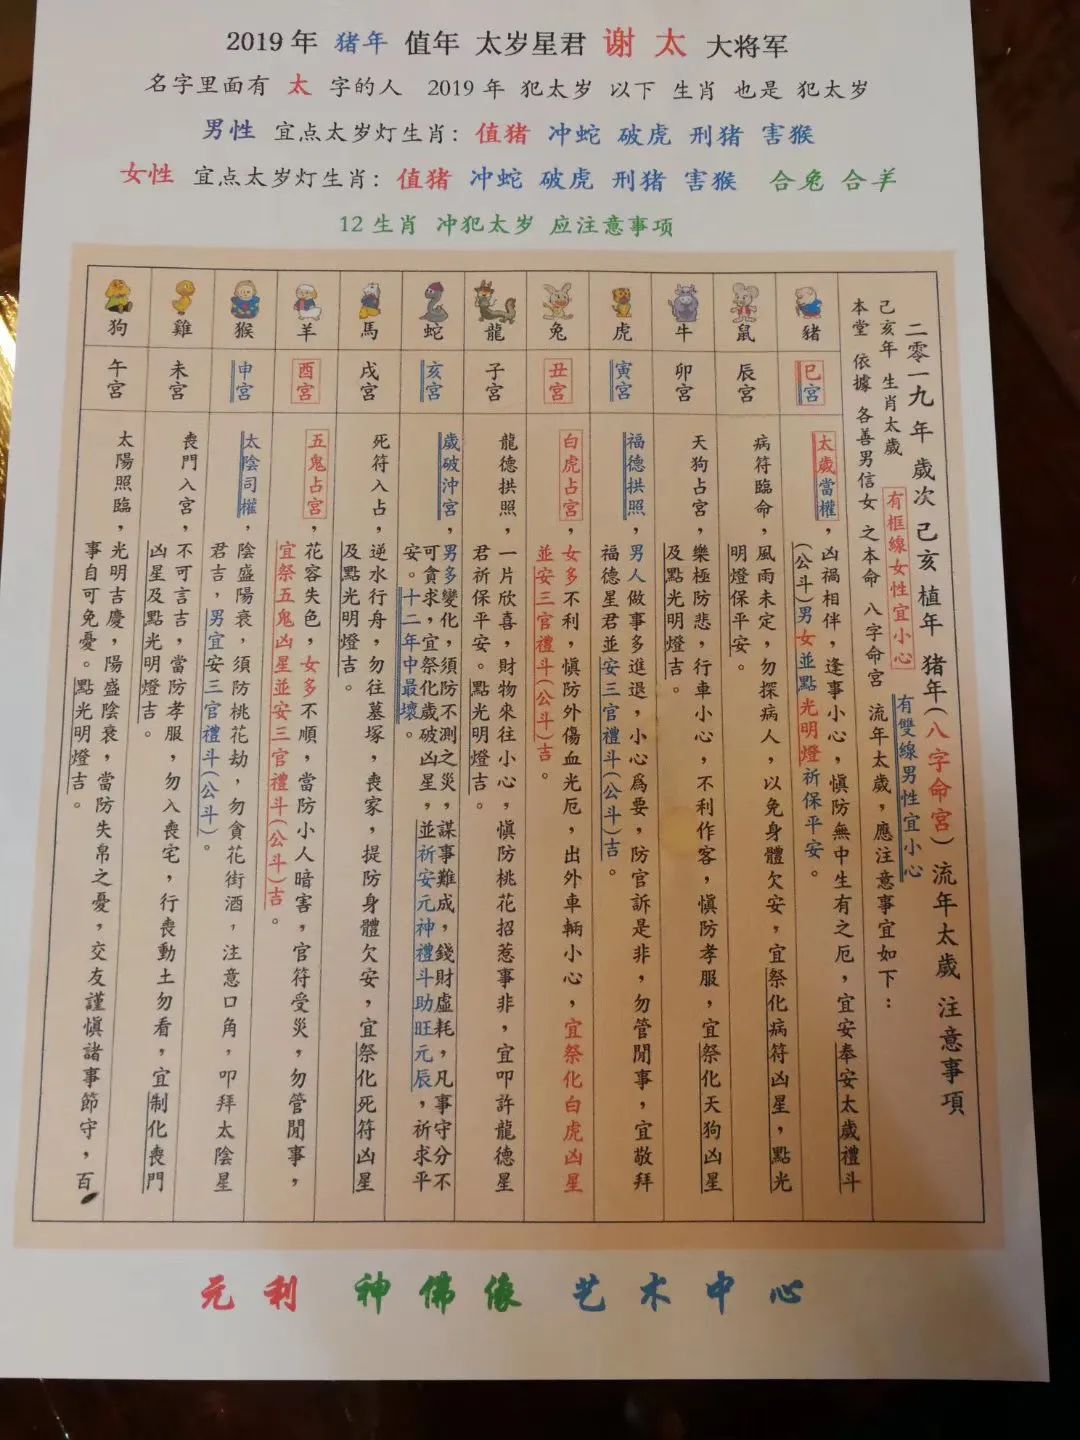 2019年 猪年 值年 太岁星君 谢太 大将军
名字里面有 太 字的人 2019年 犯太岁 以下 生肖 也是 犯太岁
男性 宜点太岁灯生肖: 值猪 冲蛇 破虎 刑猪 害猴
女性 宜点太岁灯生肖: 值猪 冲蛇 破虎 刑猪 害猴 合兔 合羊
12生肖 冲犯太岁 应注意事项
二零一九年 歲次 己亥 植年 猪年(八字命宮)流年太歲 注意事項
有框線女性宜小心
有雙線男性宜小心
己亥年 生肖太歲
本堂 依據 各善男信女 之本命 八字命宮 流年太歲,應注意事宜如下:
豬
巳宮
太歲當權,凶禍相伴,逢事小心,慎防無中生有之厄,宜安奉安太歲禮斗
(公斗)男女並點光明燈祈保平安。
鼠
辰宮
病符臨命,風雨未定,勿探病人,以免身體欠安,宜祭化病符凶星,點光
明燈保平安。
牛
卯宮
天狗占宮,樂極防悲,行車小心,不利作客,慎防孝服,宜祭化天狗凶星
及點光明燈吉。
虎
寅宮
福德拱照,男人做事多進退,小心爲要,防官訴是非,勿管閒事,宜敬拜
福德星君並安三官禮斗(公斗)吉。
兔
丑宮
白虎占宮,女多不利,慎防外傷血光厄,出外車輛小心,宜祭化白虎凶星
並安三官禮斗(公斗)吉。
龍
子宮
龍德拱照,一片欣喜,財物來往小心,慎防桃花招惹事非,宜叩許龍德星
君祈保平安。點光明燈吉。
蛇
亥宮
歲破沖宮,男多變化,須防不測之災,謀事難成,錢財虛耗,凡事守分不
可貪求,宜祭化歲破凶星,並祈安元神禮斗助旺元辰,祈求平
安。十二年中最壞。
馬
戌宮
死符入占,逆水行舟,勿往墓塚,喪家,提防身體欠安,宜祭化死符凶星
及點光明燈吉。
羊
酉宮
五鬼占宮,花容失色,女多不順,當防小人暗害,官符受災,勿管閒事,
宜祭五鬼凶星並安三官禮斗(公斗)吉。
猴
申宮
太陰司權,陰盛陽衰,須防桃花劫,勿貪花街酒,注意口角,叩拜太陰星
君吉,男宜安三官禮斗(公斗)。
雞
未宮
喪門入宮,不可言吉,當防孝服,勿入喪宅,行喪動土勿看,宜制化喪門
凶星及點光明燈吉。
狗
午宮
太陽照臨,光明吉慶,陽盛陰衰,當防失帛之憂,交友謹慎諸事節守,百
事自可免憂。點光明燈吉。
元利 神佛像 艺术中心